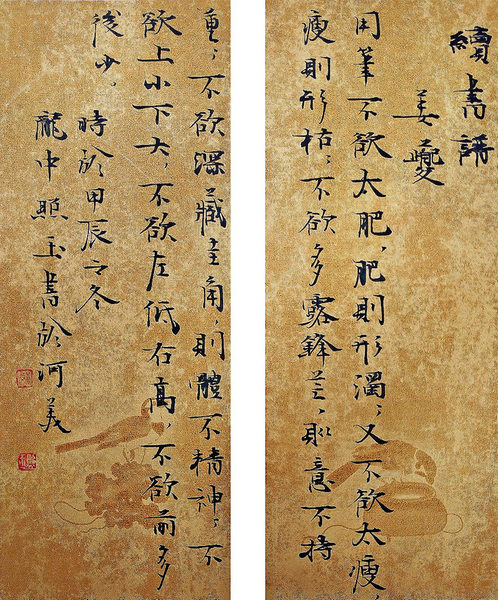 續書譜
姜夔
用筆不欲太肥，肥則形濁；又不欲太瘦，
瘦則形枯；不欲多露鋒芒，意不持
重；不欲深藏圭角，則體不精神；不
欲上小下大，不欲左低右高，不欲前多
後少。
時於甲辰之冬
中照玉書於河美